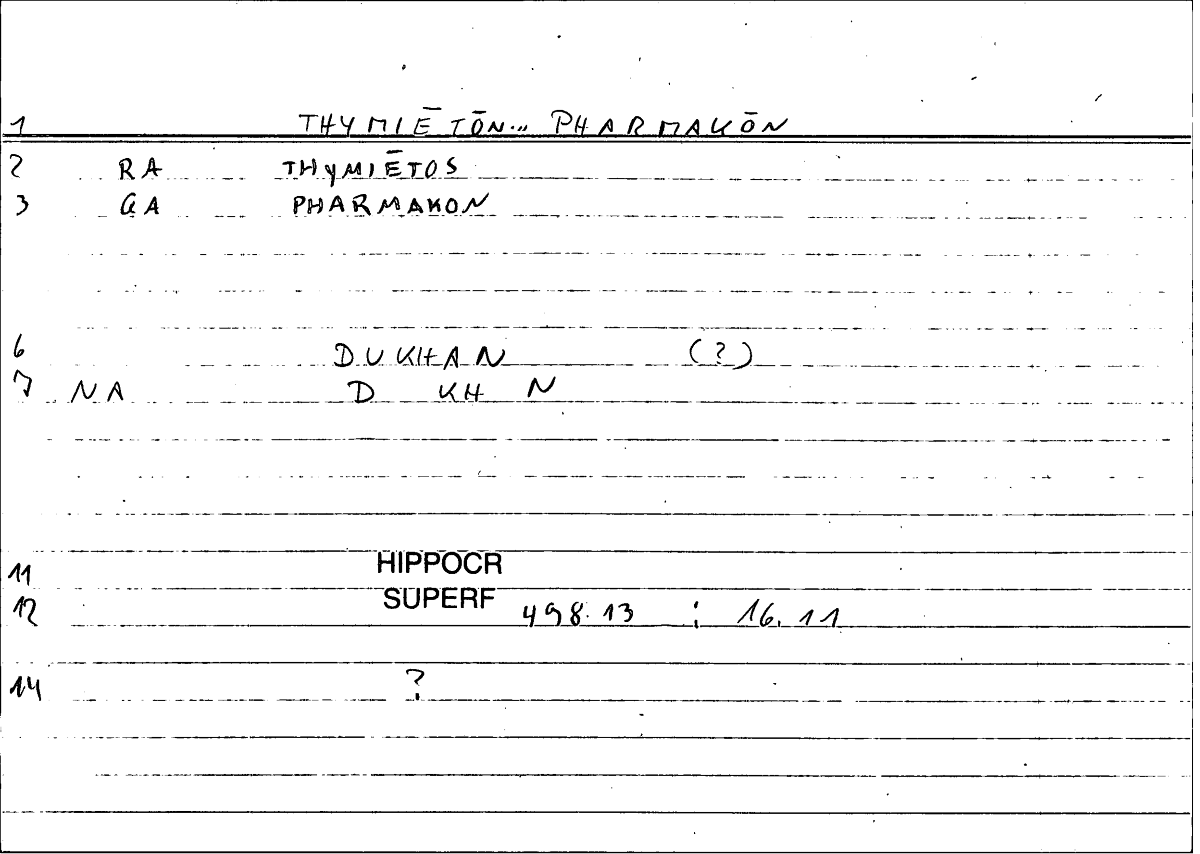 1 THYMIĒTŌN... PHARMAKŌN
2 RA THYMIĒTOS
3 GA PHARMAKON
6 DUKHAN (?)
7 NA D KH N
11 HIPPOCR
12 SUPERF 498.13 ; 16.11
14 ?